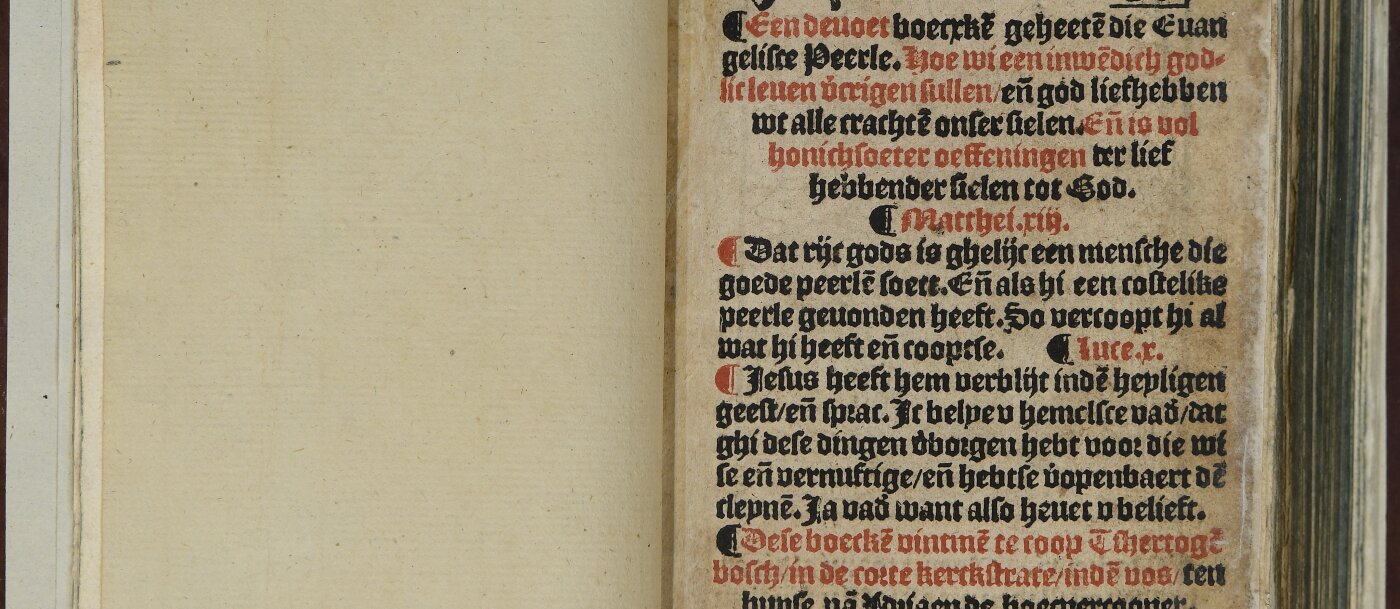 ¶Een deuoet boecxkē geheetē die Euan
geliste Peerle. Hoe wi een inwēdich god⸗
lic leuen v̄crigen sullen/eñ god liefhebben
wt alle crachtē onser sielen. Eñ is vol
honichsoeter oeffeningen der lief
hebbender sielen tot God.
¶ Matthei.xiij.
¶ Dat rijc gods is ghelijc een mensche die
goede peerlē soect. Eñ als hi een costelike
peerle geuonden heeft. So vercoopt hi al
wat hi heeft eñ cooptse. ¶ Luce.x.
¶ Jesus heeft hem verblijt indē heyligen
geest/eñ sprac. Jc belye v hemelsce vad̄/dat
ghi dese dingen v̄borgen hebt voor die wi
se eñ vernuftige/eñ hebtse v̄openbaert dē
cleynē. Ja vad̄ want also heuet v belieft.
¶Dese boeckē vintmē te coop Tshertogē
bosch/in de corte kerckstrate/indē vos/ten
huyse vā Adriaen de boecvercooper.